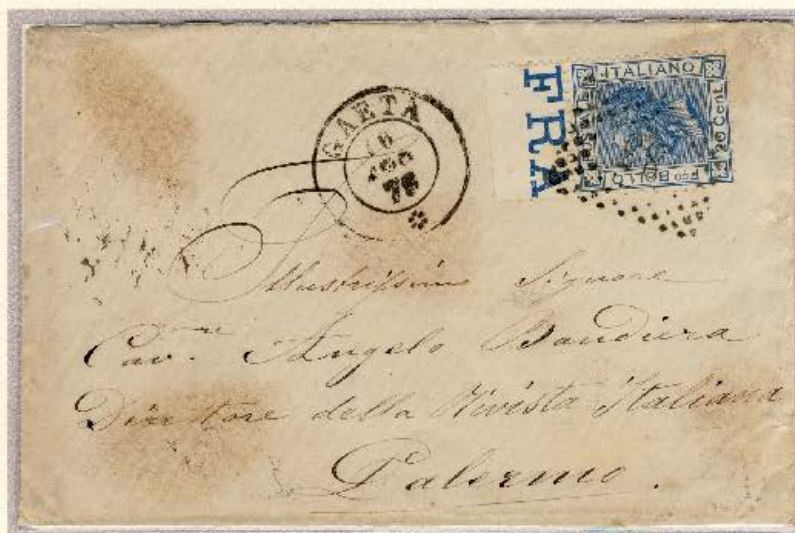 FRA
ITALIANO
20 Cent.
BOLLO
GAETA
Illustrissimo Signore
Cav.re Angelo Bandiera
Direttore della Rivista Italiana
Palermo.